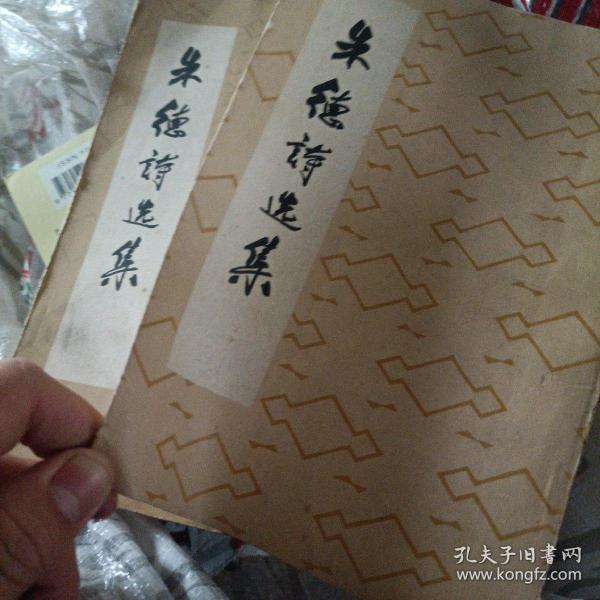 朱德詩选集
朱德詩选集
ISBN 7
孔夫子旧书网
www.kongfz.com